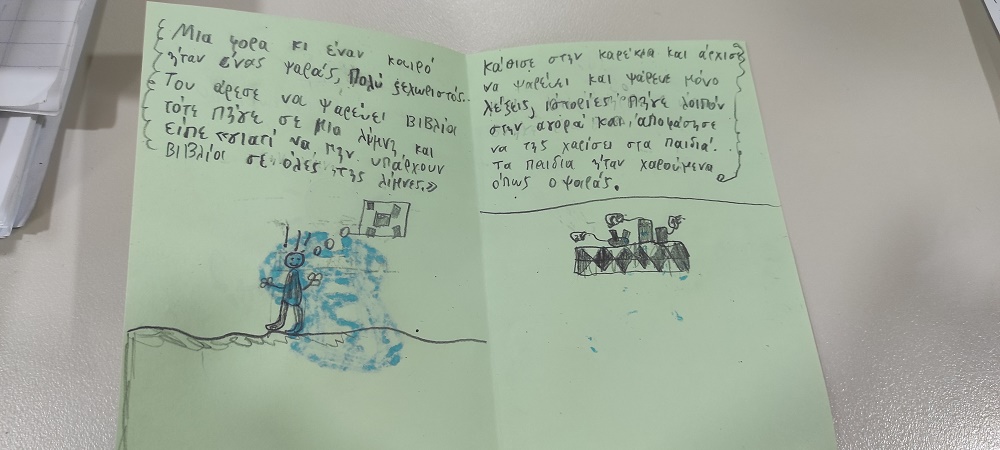 Μια φορα κι έναν καιρό
ήταν ένας ψαράς, Πολύ ξεχωριστός..
Του άρεσε να ψαρεύει ΒΙΒλία
τότε Πήγε σε μια λίμνη και
είπε «γιατί να μην υπάρχουν
ΒΙΒλία σε όλες της λίμνες.»
κάθισε στην καρέκλα και άρχισε
να ψαρεύει και ψάρευε μόνο
λέξεις, ιστορίες. Πήγε λοιπόν
στην αγορά και αποφάσησε
να της χαρίσει στα παιδιά..
Τα παιδια ήταν χαρούμενα
όπως ο ψαράς.